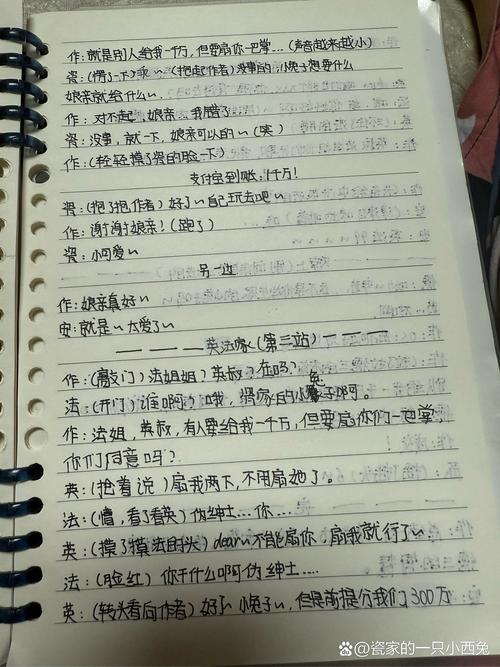 作：就是别人给我一千万，但要扇你一巴掌…（声音越来越小）
瓷：（愣了一下）乖～（抱起作者）没事的，小兔子想要什么
娘亲就给什么～
作：对不起，娘亲，我膨了…
瓷：没事，就一下，娘亲可以的～（笑）
作：（轻轻摸了瓷的脸一下）
支付宝到账，1千万！
瓷：（抱了抱作者）好了～自己玩去吧～
作：谢谢娘亲！（跑了）
瓷：小可爱～
另一边
作：娘亲真好～
安：就是～太爱了～
————英法家（第三站）———
作：（敲门）法姐姐？英叔，在吗？
法：（开门）谁啊？哦，瓷家的小兔子啊。
作：法姐，英叔，有人要给我一千万，但要扇你们一巴掌，
你们同意吗？
英：（抢着说）扇我两下，不用扇她了。
法：（懵，看了看英）伪绅士…你…
英：（摸了摸法的头）dear～不能扇你，扇我就行了～
法：（脸红）你干什么啊伪绅士…
英：（转头看向作者）好了～小兔子，但是前提分我们300万
百度@瓷家的一只小西兔